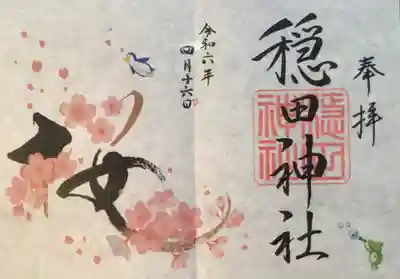 奉拝
穏田神社
穏田神社
令和六年
四月十六日
桜